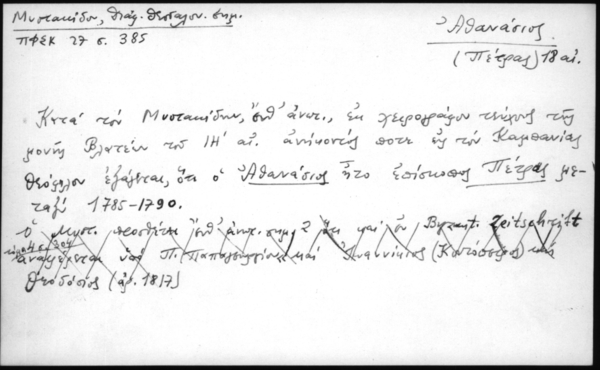 Μυστακίδου, Θιάγ. Θεσσαλον. σημ.
ΠΦΣΚ 27 σ. 385
Ἀθανάσιος
(Πέτρας) 18 αἰ.
Κατὰ τὸν Μυστακίδην, ἔνθ' ἀνωτ., ἐκ χειρογράφου τεύχους τῆς
μονῆς Βλατέων τοῦ ΙΗ' αἰ. ἀνήκοντός ποτε εἰς τὸν Καμπανίας
Θεόφιλον ἐξάγεται, ὅτι ὁ Ἀθανάσιος ἦτο ἐπίσκοπος Πέτρας με-
ταξὺ 1785-1790.
ὁ Μυστ. προσθέτει ἔνθ' ἀνωτ. σημ. 2 ὅτι καὶ ἐν Byzant. Zeitschrift
ἀναφέρεται ὑπὸ Π. Παπαγεωργίου καὶ Ἰωαννίκιος (Κοτόσερος) καὶ
Θεοδόσιος (ἀρ. 1817)